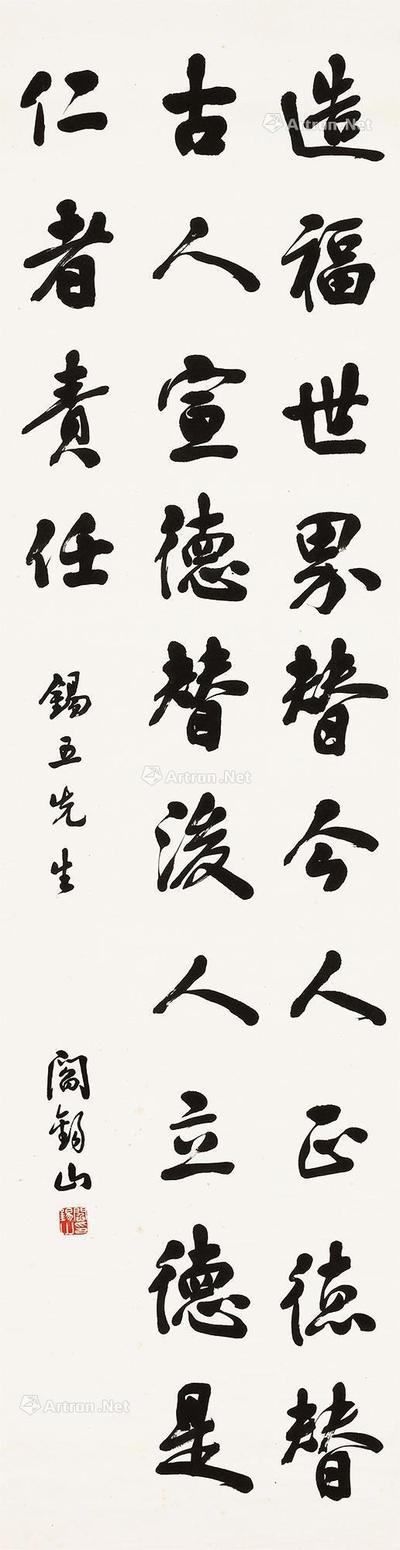 造福世界替今人正德替
古人宣德替後人立德是
仁者責任
錫五先生
閻錫山
閻錫山印
Artron.Net
Artron.Net
Artron.Net